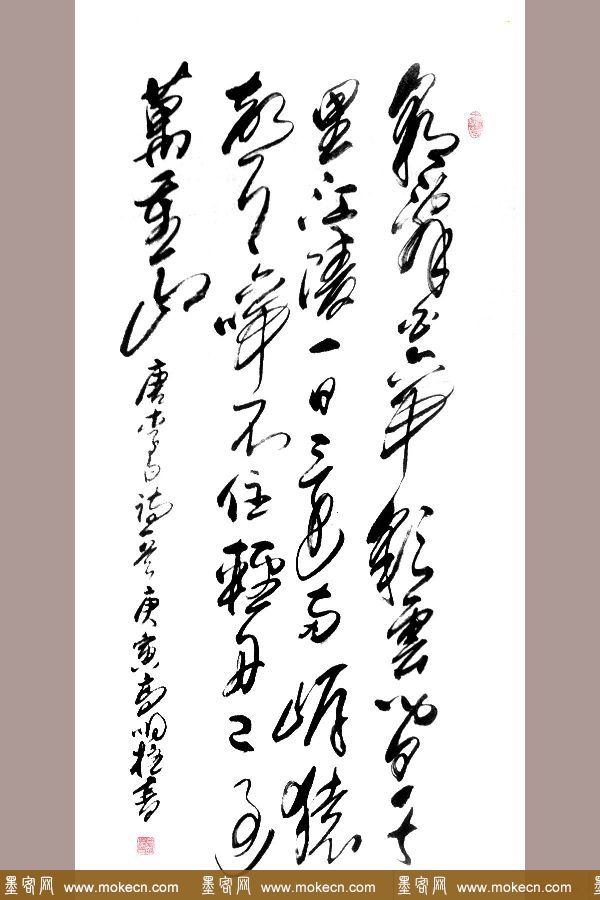 朝辭白帝彩雲間千
里江陵一日還兩岸猿
聲啼不住輕舟已過
萬重山 唐李白詩一首庚寅高明柱書
墨客网 www.mokecn.com 墨客网 www.mokecn.com 墨客网 www.mokecn.com